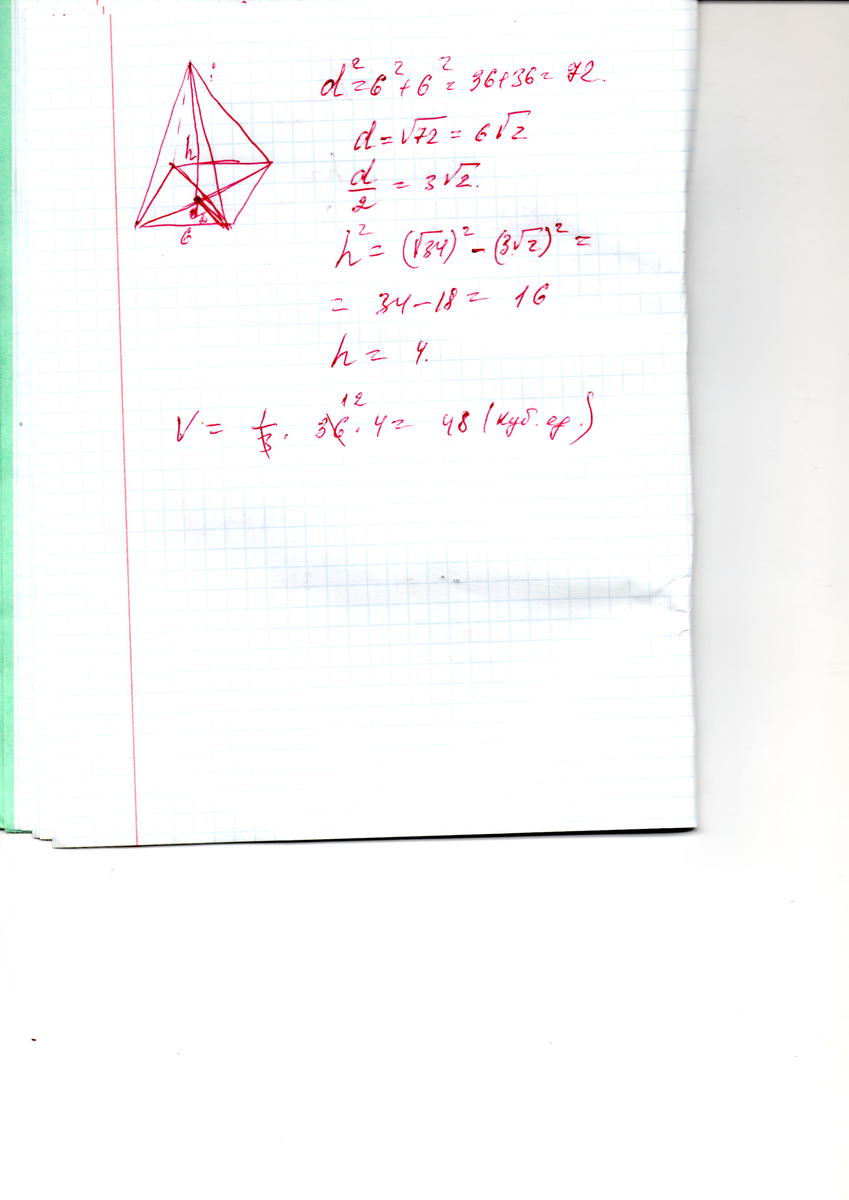 d² = 6² + 6² = 36+36 = 72.
d = √72 = 6√2
d/2 = 3√2.
h² = (√34)² - (3√2)² =
= 34 - 18 = 16
h = 4.
12
V = 1/3 · 36 · 4 = 48 (куб. ед.)
h
6